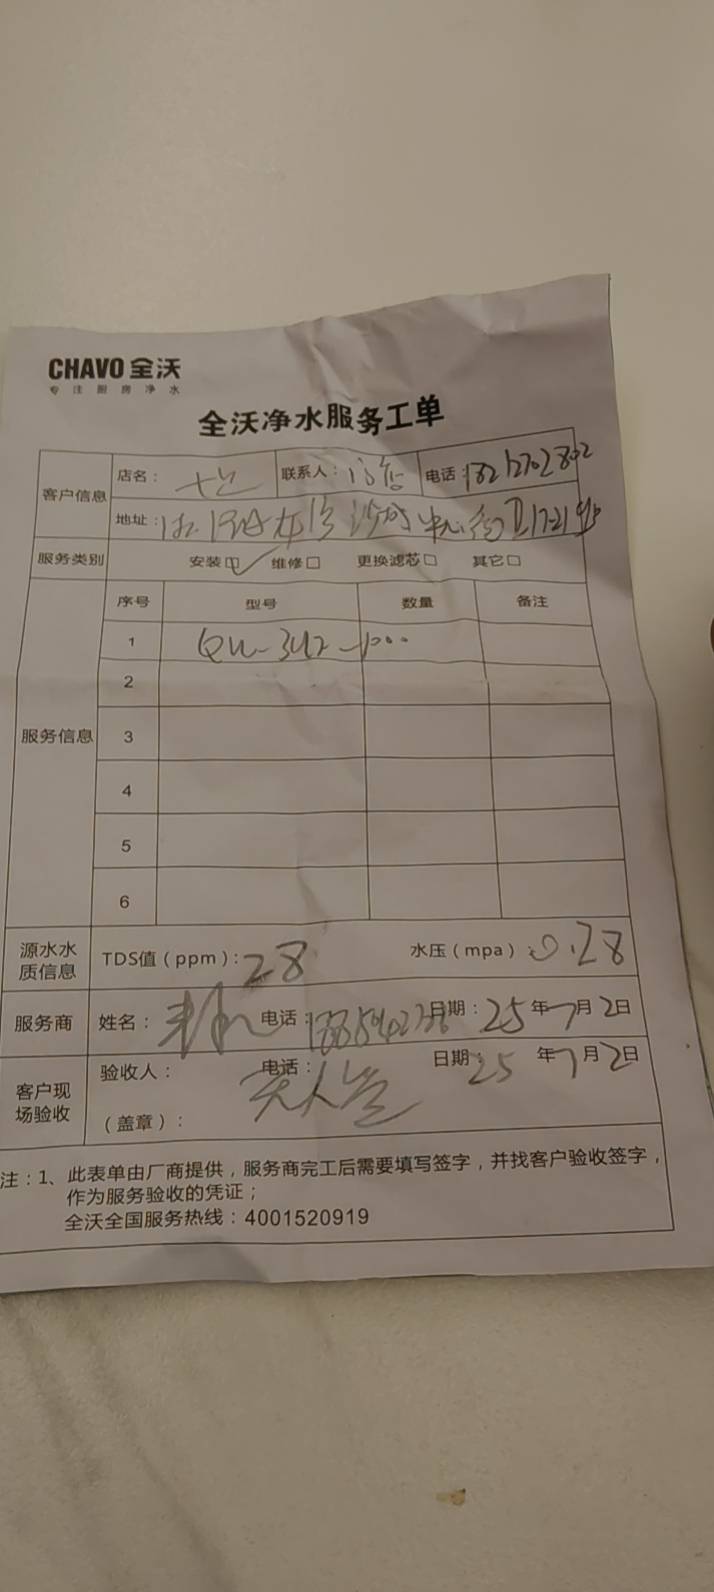 CHAVO 全沃
专注厨房净水
全沃净水服务工单
客户信息
店名： 七定 联系人： 电话：18212702802
地址：
服务类别 安装☑ 维修□ 更换滤芯□ 其它□
服务信息
序号 型号 数量 备注
1
2
3
4
5
6
源水水质信息 TDS值（ppm）：28 水压（mpa）：0.28
服务商 姓名： 电话： 日期：25年7月2日
客户现场验收 验收人： 电话： 日期：25年7月2日
（盖章）：
注：1、此表单由厂商提供，服务商完工后需要填写签字，并找客户验收签字，
作为服务验收的凭证；
全沃全国服务热线：4001520919